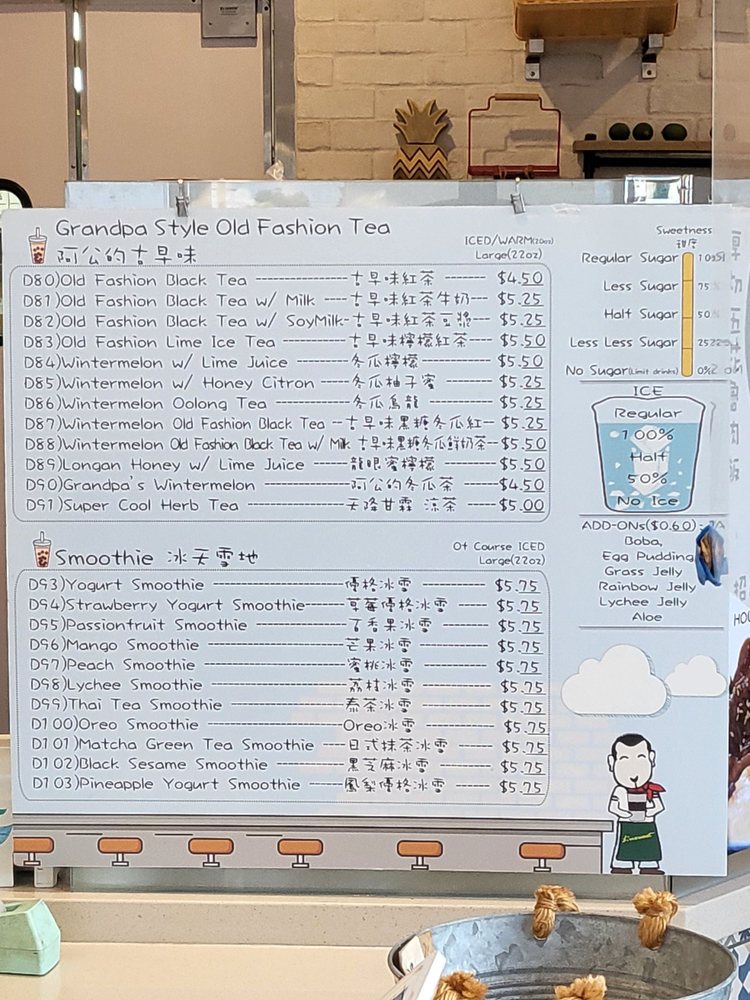 Grandpa Style Old Fashion Tea
阿公的古早味
ICED/WARM(20oz)
Large(22oz)
D80)Old Fashion Black Tea ----------------古早味紅茶 ------- $4.50
D81)Old Fashion Black Tea w/ Milk -----古早味紅茶牛奶---- $5.25
D82)Old Fashion Black Tea w/ SoyMilk-古早味紅茶豆漿--- $5.25
D83)Old Fashion Lime Ice Tea ------------古早味檸檬紅茶---- $5.50
D84)Wintermelon w/ Lime Juice ----------冬瓜檸檬----------- $5.50
D85)Wintermelon w/ Honey Citron -------冬瓜柚子蜜 -------- $5.25
D86)Wintermelon Oolong Tea --------------冬瓜烏龍----------- $5.25
D87)Wintermelon Old Fashion Black Tea --古早味黑糖冬瓜紅-- $5.25
D88)Wintermelon Old Fashion Black Tea w/ Milk 古早味黑糖冬瓜鮮奶茶--$5.50
D89)Longan Honey w/ Lime Juice --------龍眼蜜檸檬-------- $5.50
D90)Grandpa's Wintermelon ---------------阿公的冬瓜茶 ----- $4.50
D91)Super Cool Herb Tea -----------------天降甘霖 涼茶 ----$5.00
Smoothie 冰天雪地
Of Course ICED
Large(22oz)
D93)Yogurt Smoothie --------------------優格冰雪 --------- $5.75
D94)Strawberry Yogurt Smoothie------草莓優格冰雪 ------ $5.75
D95)Passionfruit Smoothie --------------百香果冰雪 ------- $5.75
D96)Mango Smoothie ---------------------芒果冰雪 --------- $5.75
D97)Peach Smoothie ---------------------蜜桃冰雪 --------- $5.75
D98)Lychee Smoothie --------------------荔枝冰雪 --------- $5.75
D99)Thai Tea Smoothie ------------------泰茶冰雪 --------- $5.75
D100)Oreo Smoothie ---------------------Oreo冰雪 --------- $5.75
D101)Matcha Green Tea Smoothie ---日式抹茶冰雪 ------ $5.75
D102)Black Sesame Smoothie ----------黑芝麻冰雪 ------- $5.75
D103)Pineapple Yogurt Smoothie ------鳳梨優格冰雪 ------ $5.75
Sweetness
甜度
Regular Sugar
Less Sugar 75
Half Sugar 50
Less Less Sugar 25
No Sugar(Limit drinks) 0%
ICE
Regular
100%
Half
50%
No Ice
ADD-ONs($0.60)
Boba,
Egg Pudding
Grass Jelly
Rainbow Jelly
Lychee Jelly
Aloe